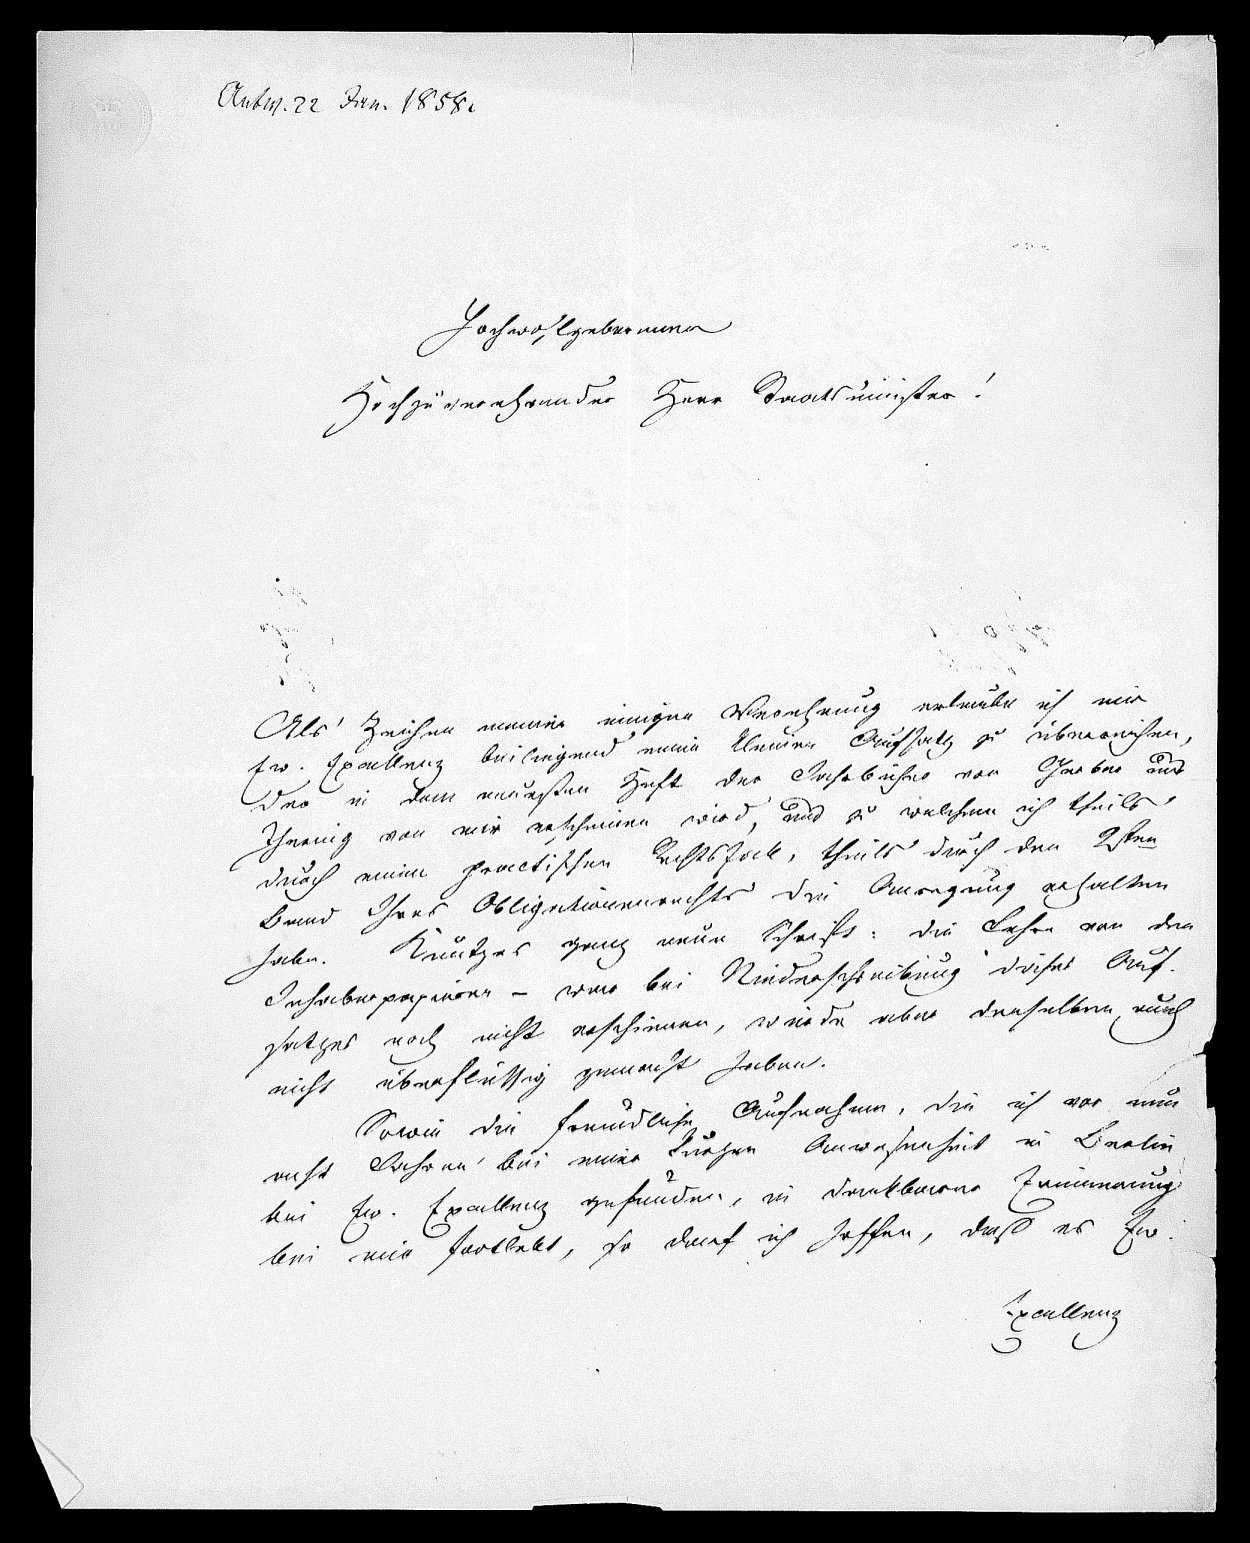 Antw. 22 Jan. 1858.
Hochwohlgeborener
Hochzuverehrender Herr Staatsminister!
Als Zeichen meiner innigen Verehrung erlaube ich mir
Ew. Excellenz beiliegend einen kleinen Aufsatz zu überreichen,
der in dem neuesten Heft der Jahrbücher von Gerber und
Ihering von mir erscheinen wird, und zu welchem ich theils
durch einen practischen Rechtsfall, theils durch den 2sten
Band Ihres Obligationenrechts die Anregung erhalten
habe. Kuntzes ganz neue Schrift: die Lehre von den
Inhaberpapieren – war bei Niederschreibung dieses Auf-
satzes noch nicht erschienen, würde aber denselben auch
nicht überflüssig gemacht haben.
Sowie die freundliche Aufnahme, die ich vor nun
acht Jahren bei meiner kurzen Anwesenheit in Berlin
bei Ew. Excellenz gefunden, in dankbarer Erinnerung
bei mir fortlebt, so darf ich hoffen, daß es Ew.
Excellenz